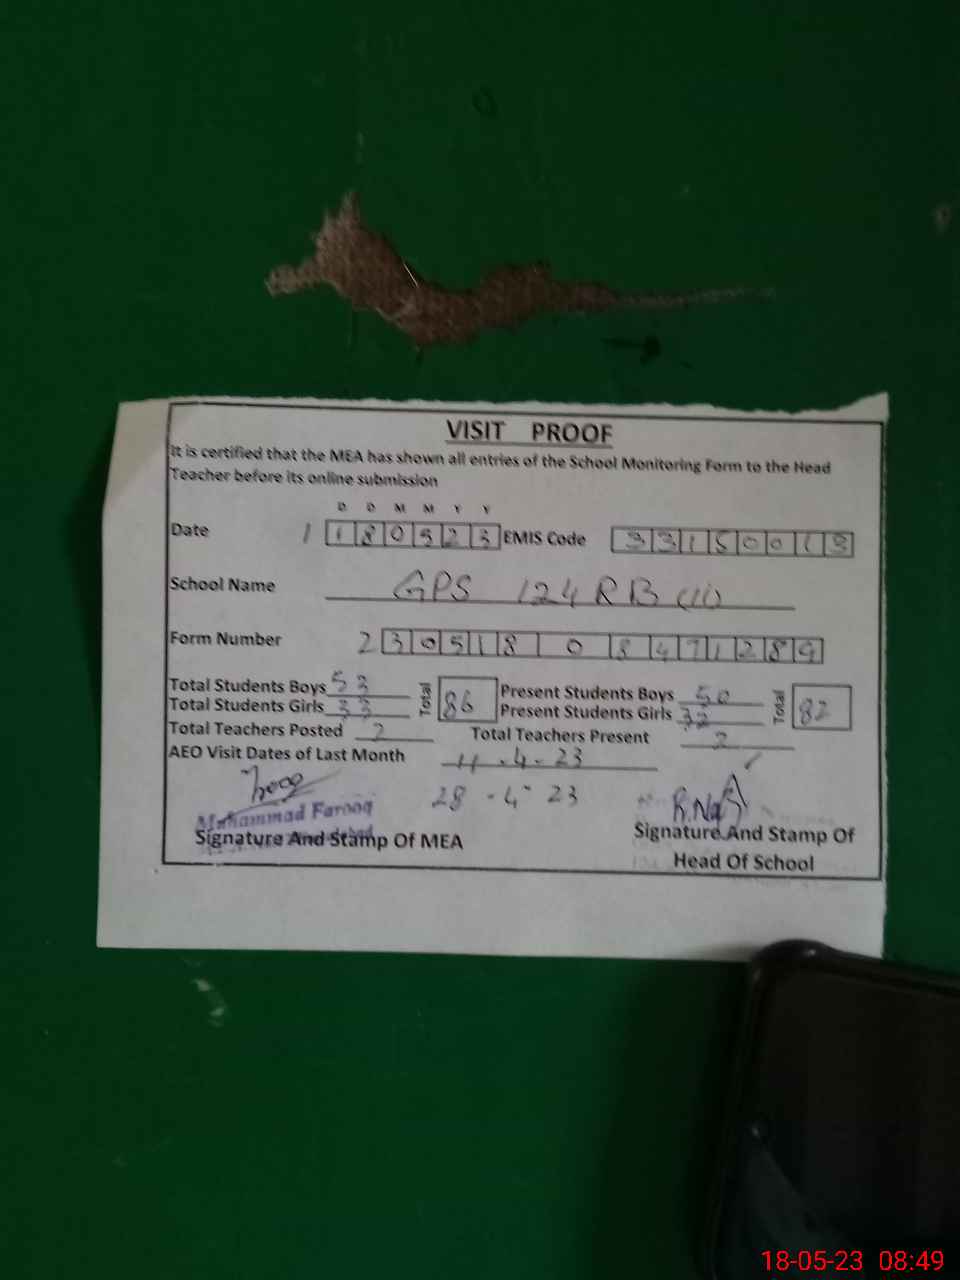 VISIT PROOF
It is certified that the MEA has shown all entries of the School Monitoring Form to the Head
Teacher before its online submission
D D M M Y Y
Date 180523 EMIS Code 33150013
School Name GPS 124 RB (II)
Form Number 230518 0 8471289
Total Students Boys 53 Total 86 Present Students Boys 50 Total 82
Total Students Girls 33 Present Students Girls 32
Total Teachers Posted 2 Total Teachers Present 2
AEO Visit Dates of Last Month 11-4-23
28-4-23
Muhammad Farooq
Signature And Stamp Of MEA
Signature And Stamp Of
Head Of School
18-05-23 08:49